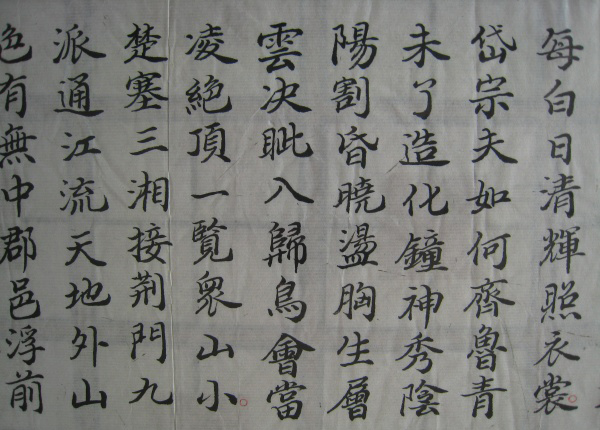 每白日清輝照衣裳
岱宗夫如何齊魯青
未了造化鐘神秀陰
陽割昏曉盪胸生層
雲決眦入歸鳥會當
凌絕頂一覽衆山小
楚塞三湘接荊門九
派通江流天地外山
色有無中郡邑浮前